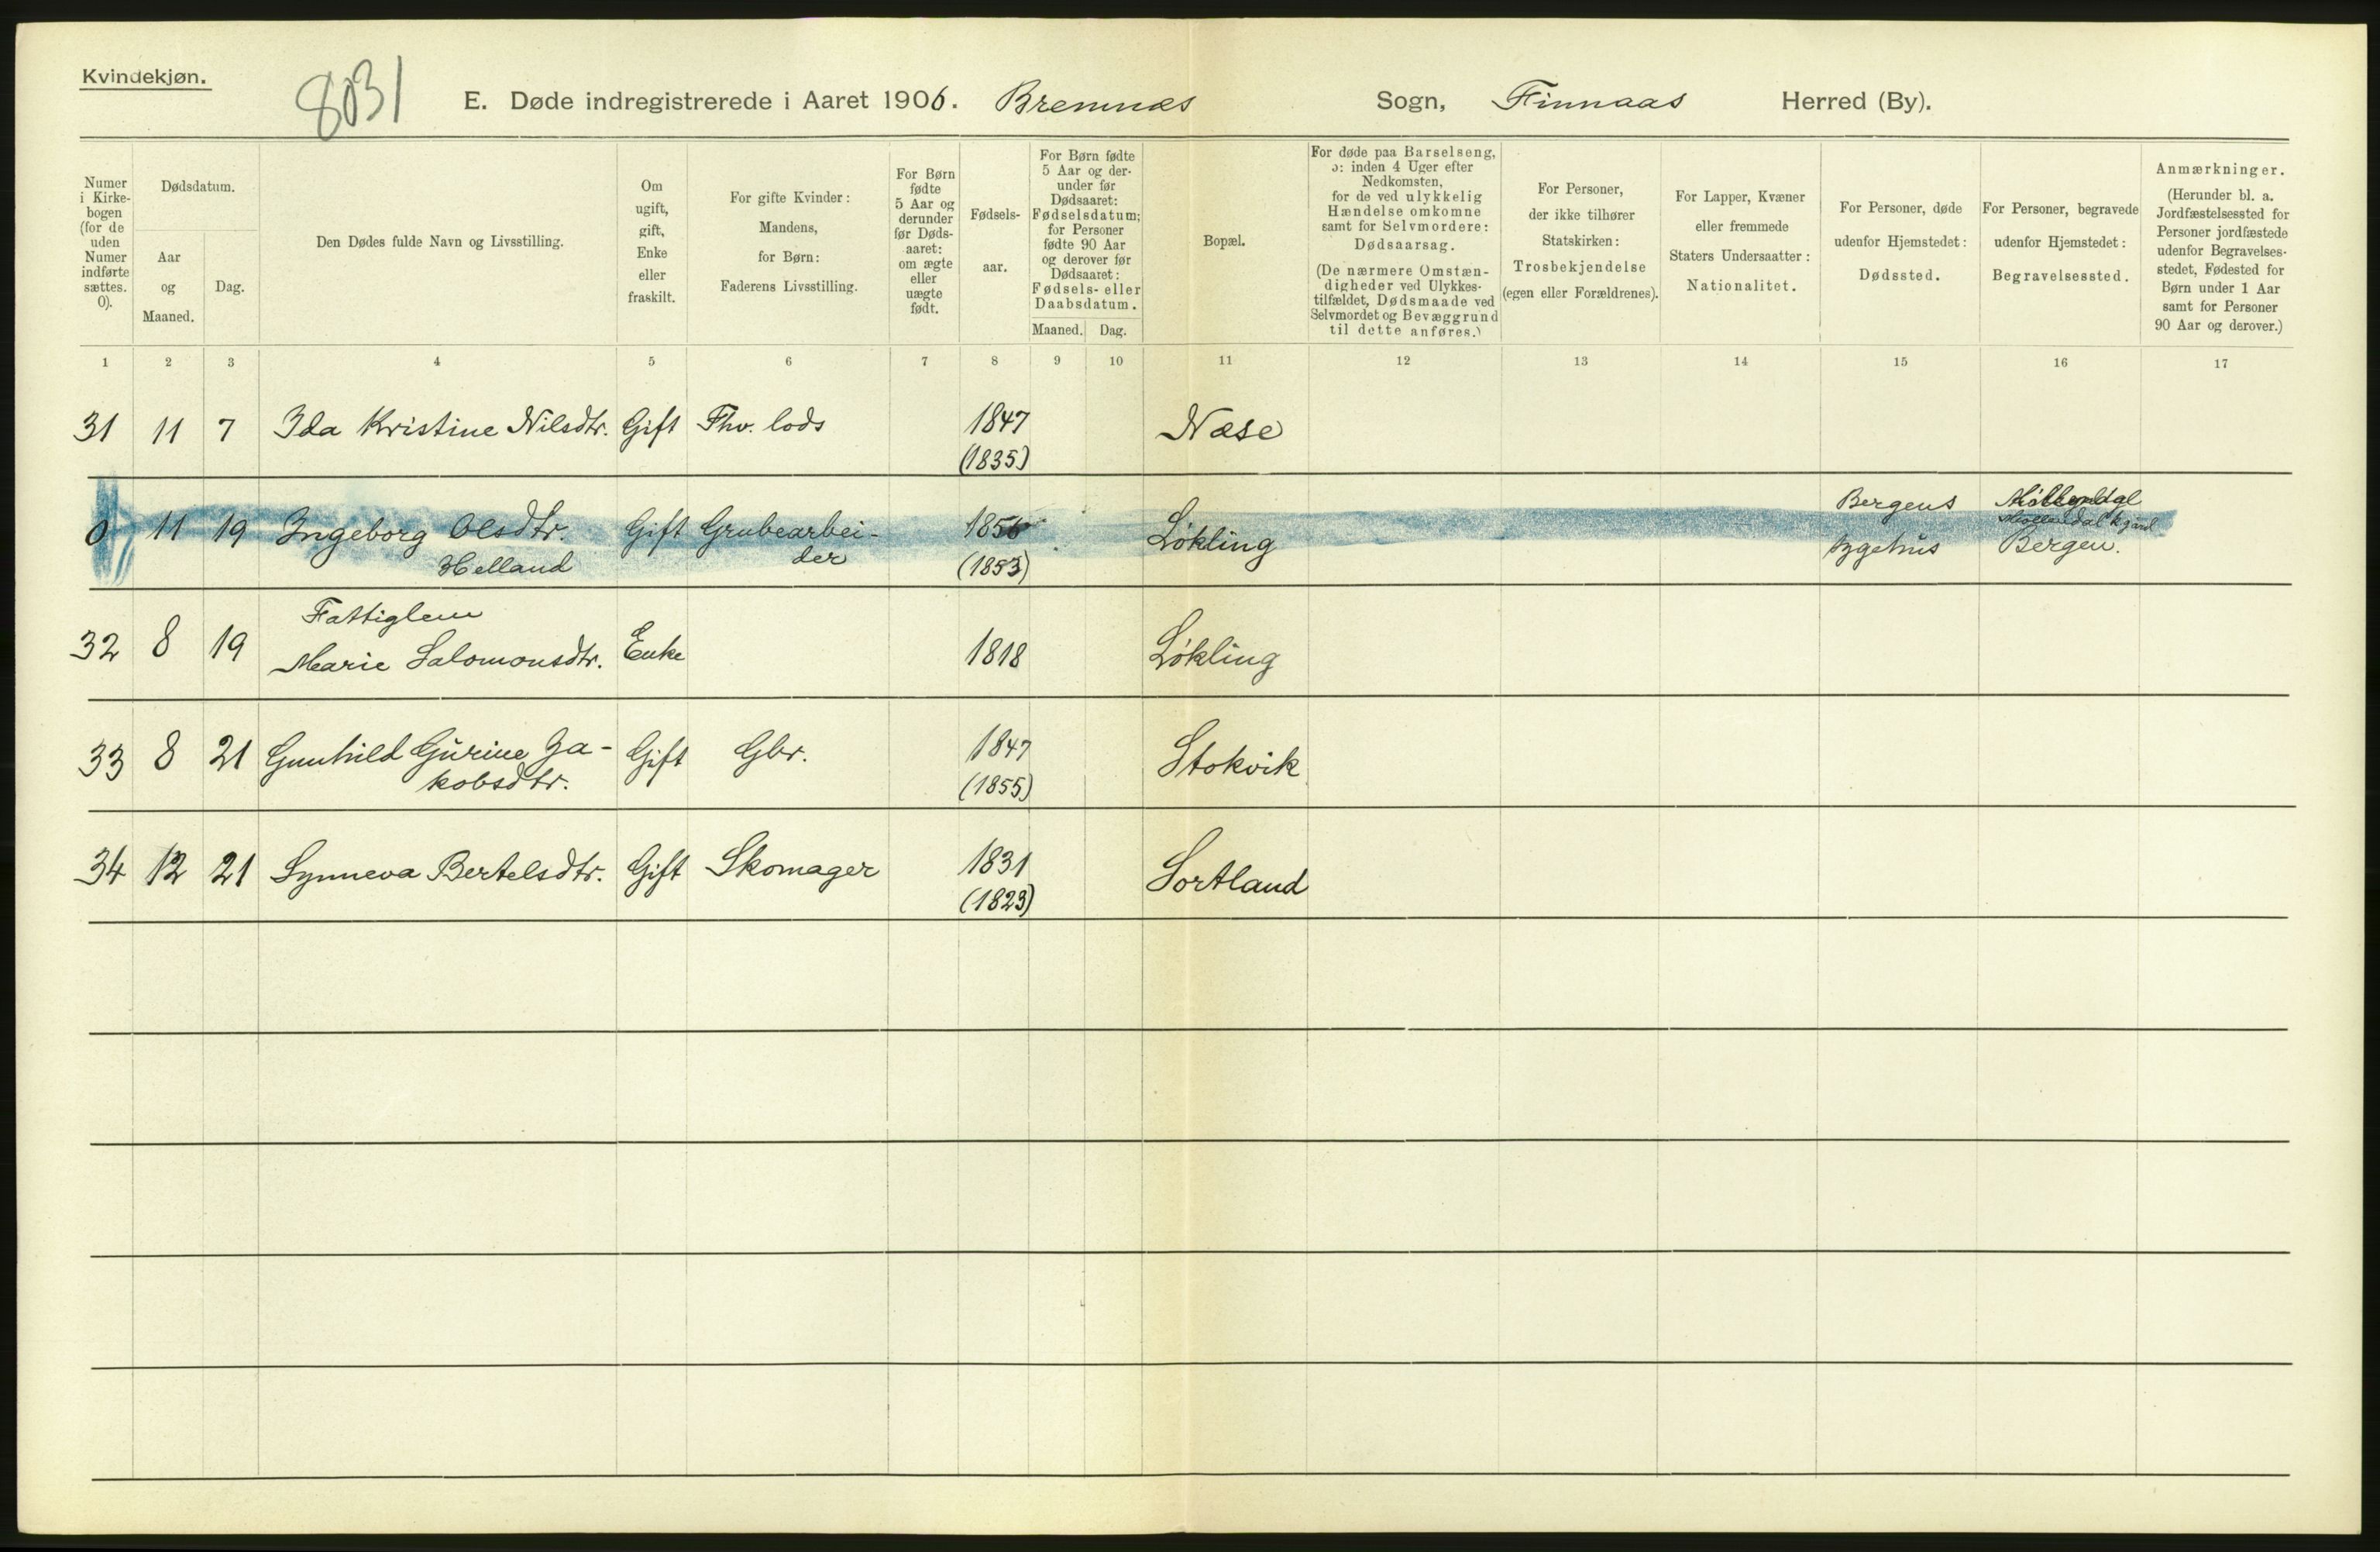 Kvindekjøn.
8031
E. Døde indregistrerede i Aaret 1906. Bremnes Sogn, Finnaas Herred (By).
Numer i Kirke-bogen (for de uden Numer indførte sættes. 0).
Dødsdatum.
Aar og Maaned.
Dag.
Den Dødes fulde Navn og Livsstilling.
Om ugift, gift, Enke eller fraskilt.
For gifte Kvinder: Mandens, for Børn: Faderens Livsstilling.
For Børn fødte 5 Aar og derunder før Døds-aaret: om ægte eller uægte født.
Fødsels-aar.
For Børn fødte 5 Aar og der-under før Dødsaaret: Fødselsdatum; for Personer fødte 90 Aar og derover før Dødsaaret: Fødsels- eller Daabsdatum.
Maaned. Dag.
Bopæl.
For døde paa Barselseng, ɔ: inden 4 Uger efter Nedkomsten, for de ved ulykkelig Hændelse omkomne samt for Selvmordere: Dødsaarsag.
(De nærmere Omstæn-digheder ved Ulykkes-tilfældet, Dødsmaade ved Selvmordet og Bevæggrund til dette anføres.)
For Personer, der ikke tilhører Statskirken: Trosbekjendelse (egen eller Forældrenes).
For Lapper, Kvæner eller fremmede Staters Undersaatter: Nationalitet.
For Personer, døde udenfor Hjemstedet: Dødssted.
For Personer, begravede udenfor Hjemstedet: Begravelsessted.
Anmærkninger.
(Herunder bl. a. Jordfæstelsessted for Personer jordfæstede udenfor Begravelses-stedet, Fødested for Børn under 1 Aar samt for Personer 90 Aar og derover.)
1 2 3 4 5 6 7 8 9 10 11 12 13 14 15 16 17
31 11 7 Ida Kristine Nilsdtr. Gift Fhv. lods 1847 Næse
(1835)
Bergens Møllendal
0 11 19 Ingeborg Olsdtr. Gift Grubearbei- 1856 Løkling Møllendal k.gård
Helland der (1853) sygehus Bergen.
Fattiglem
32 8 19 Marie Salomonsdtr. Enke 1818 Løkling
33 8 21 Gunhild Gurine Ja- Gift Gbr. 1847 Stokvik
kobsdtr. (1855)
34 12 21 Synneva Bertelsdtr. Gift Skomager 1831 Sortland
(1823)